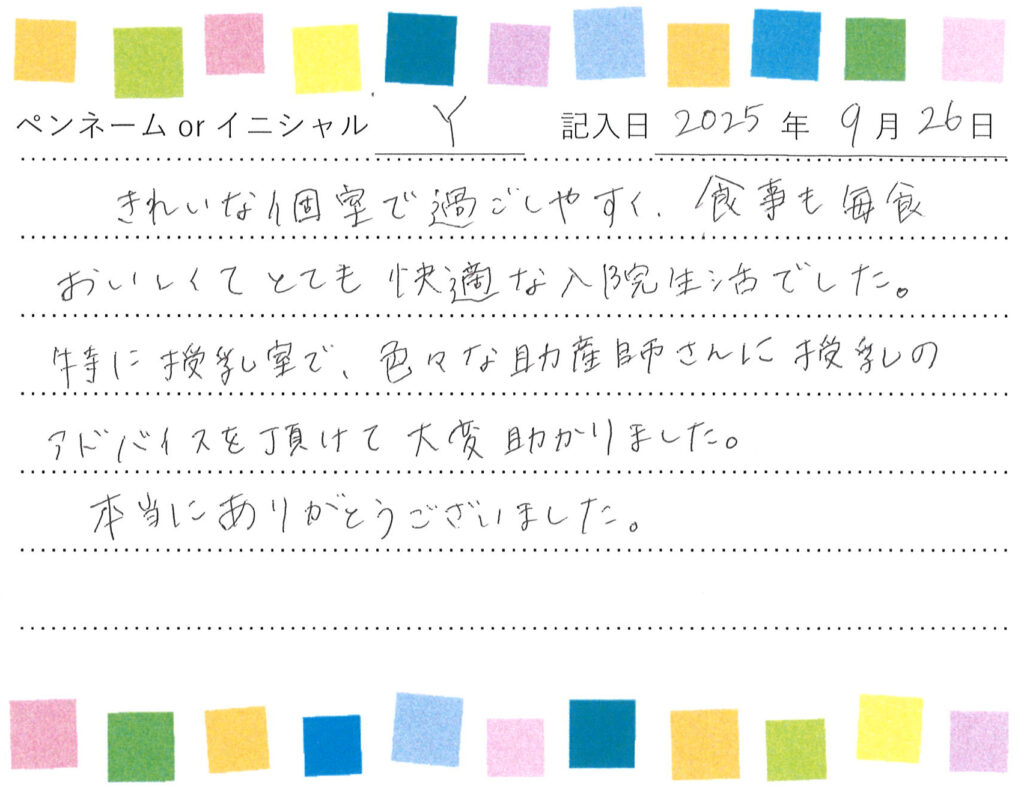 ペンネーム or イニシャル Y 記入日 2025 年 9 月 26 日
きれいな個室で過ごしやすく、食事も毎食
おいしくてとても快適な入院生活でした。
特に授乳室で、色々な助産師さんに授乳の
アドバイスを頂けて大変助かりました。
本当にありがとうございました。